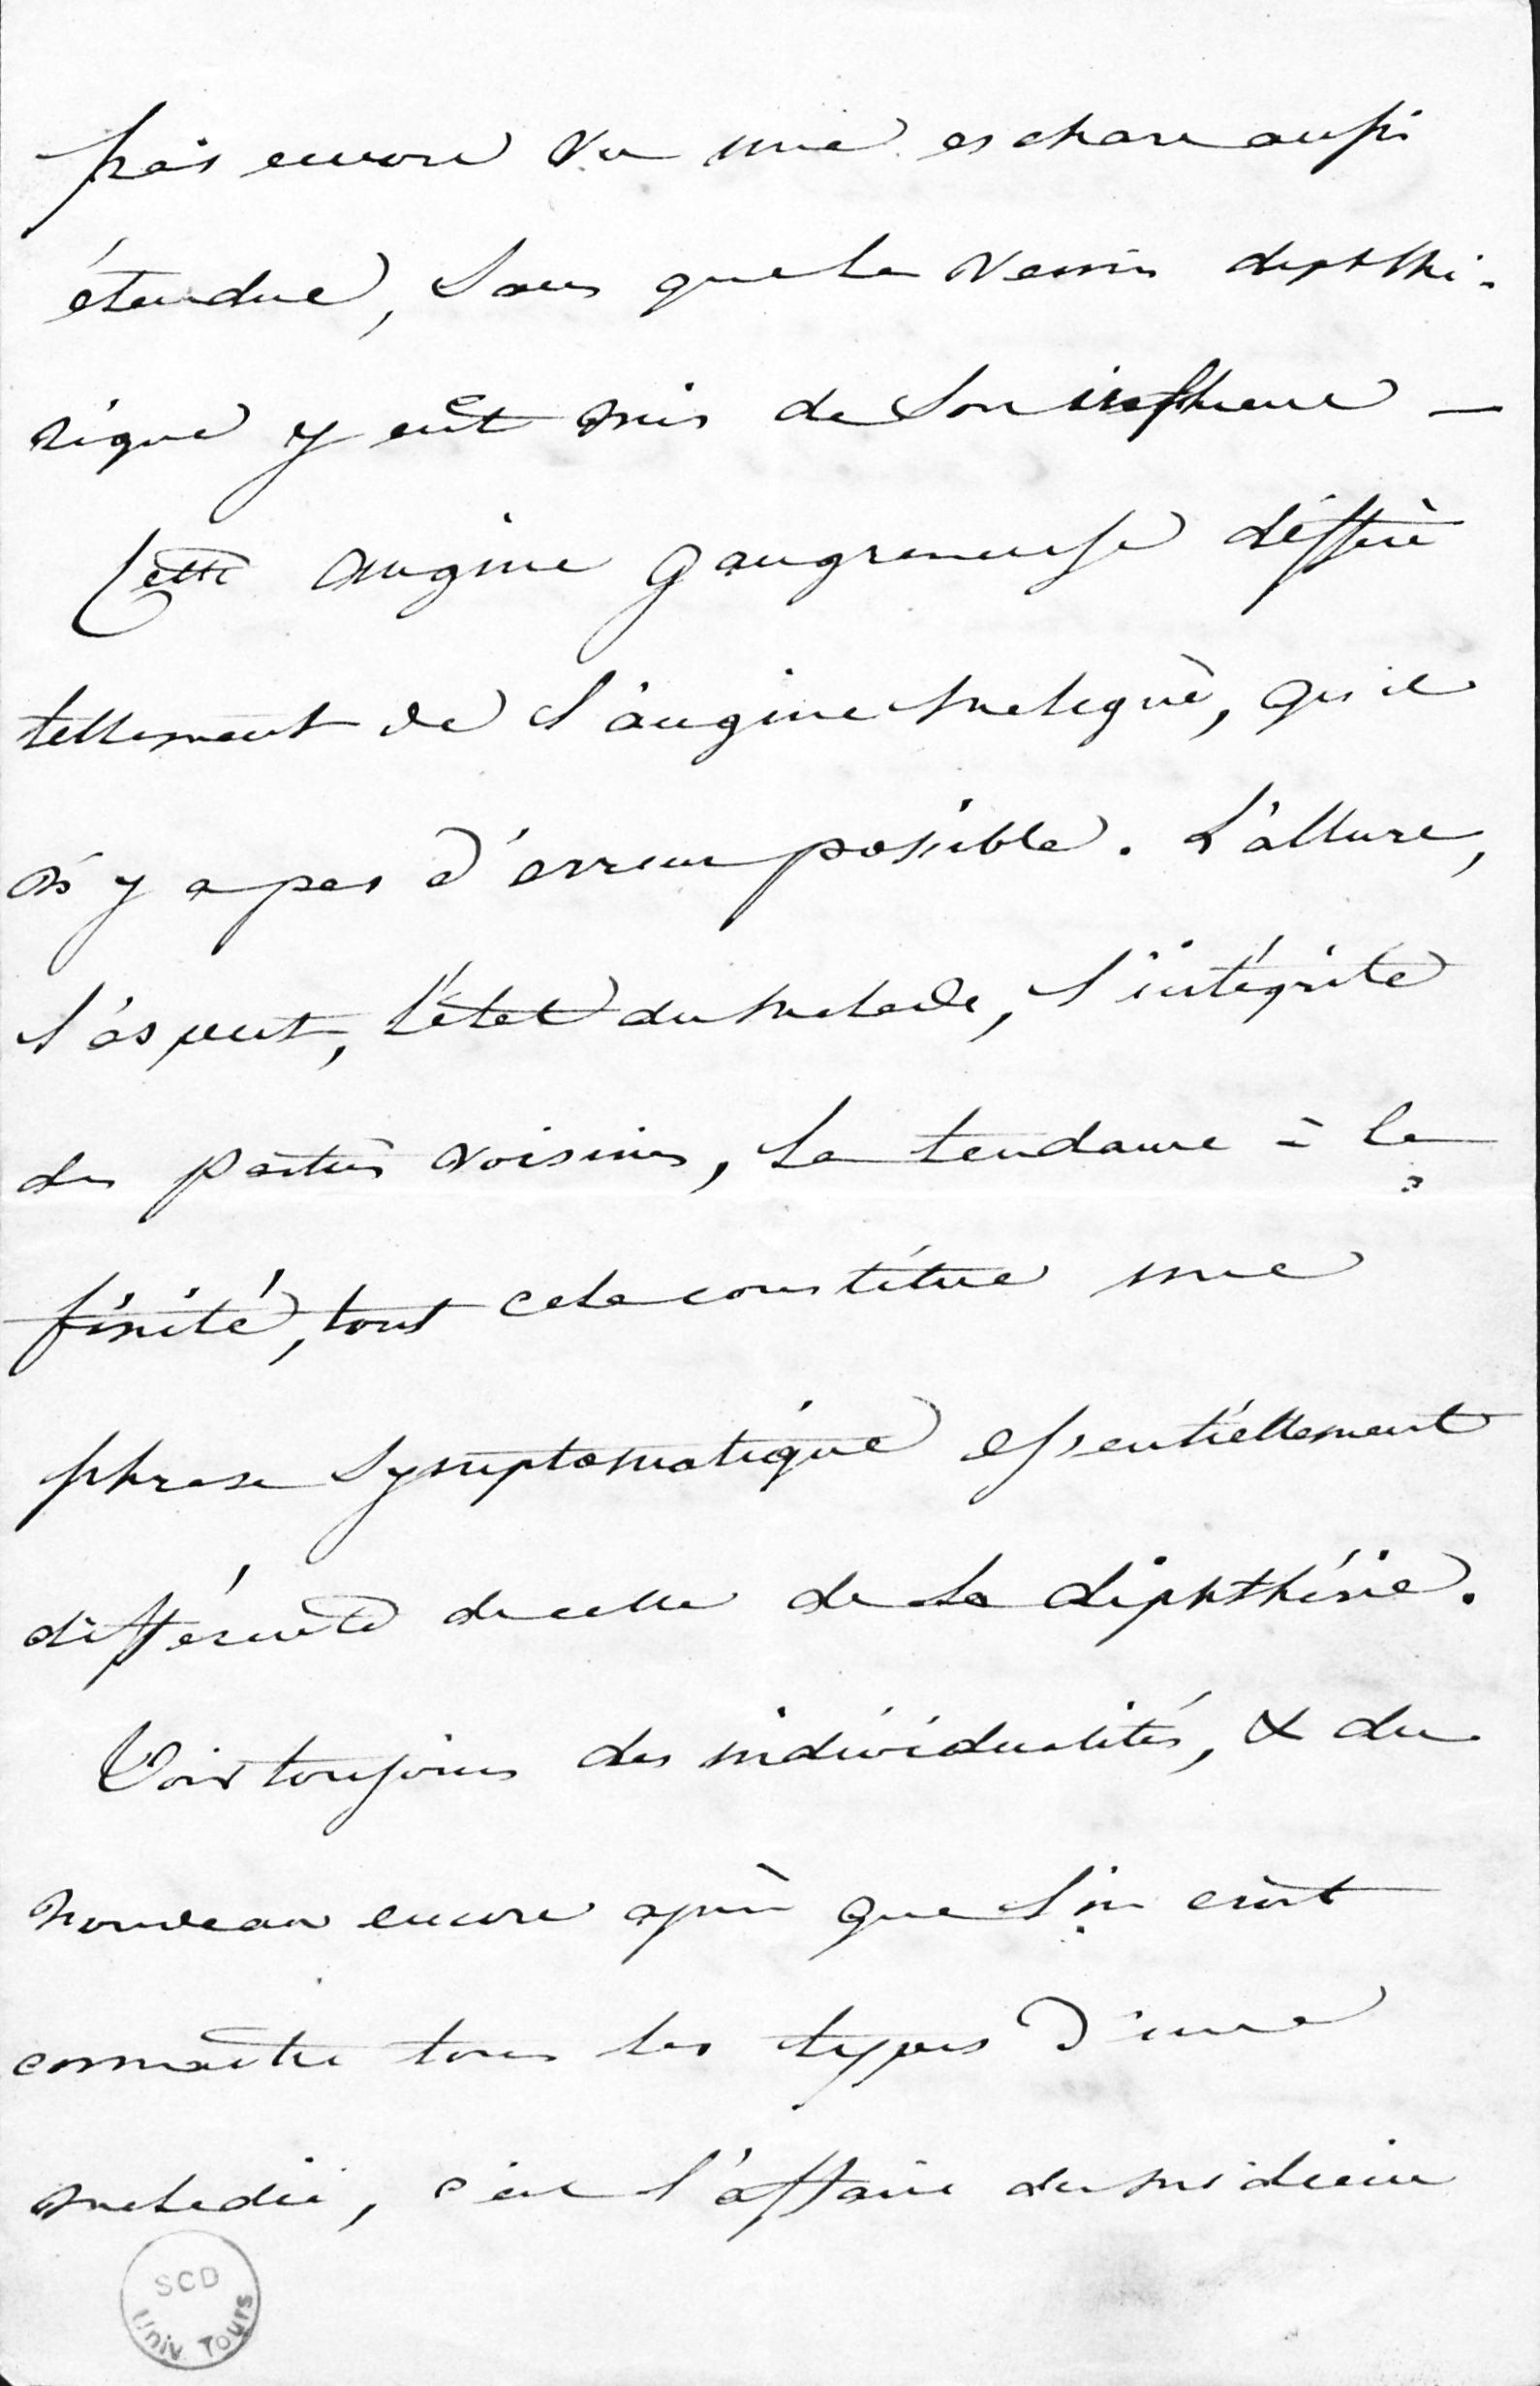 pas encore vu une eschare aussi
étendue, sans que le venin diphthé-
rique y eût mis de son influence —
Cette angine gangreneuse diffère
tellement de l'angine maligne, qu'il
n'y a pas d'erreur possible. L'allure,
l'aspect, l'état du malade, l'intégrité
des parties voisines, la tendance à la
finité, tout cela constitue une
phrase symptomatique essentiellement
différente de celle de la diphthérie.
Voir toujours des individualités, & du
nouveau encore après que l'on croit
connaître tous les types d'une
maladie, c'est l'affaire du médecin
SCD
Univ Tours